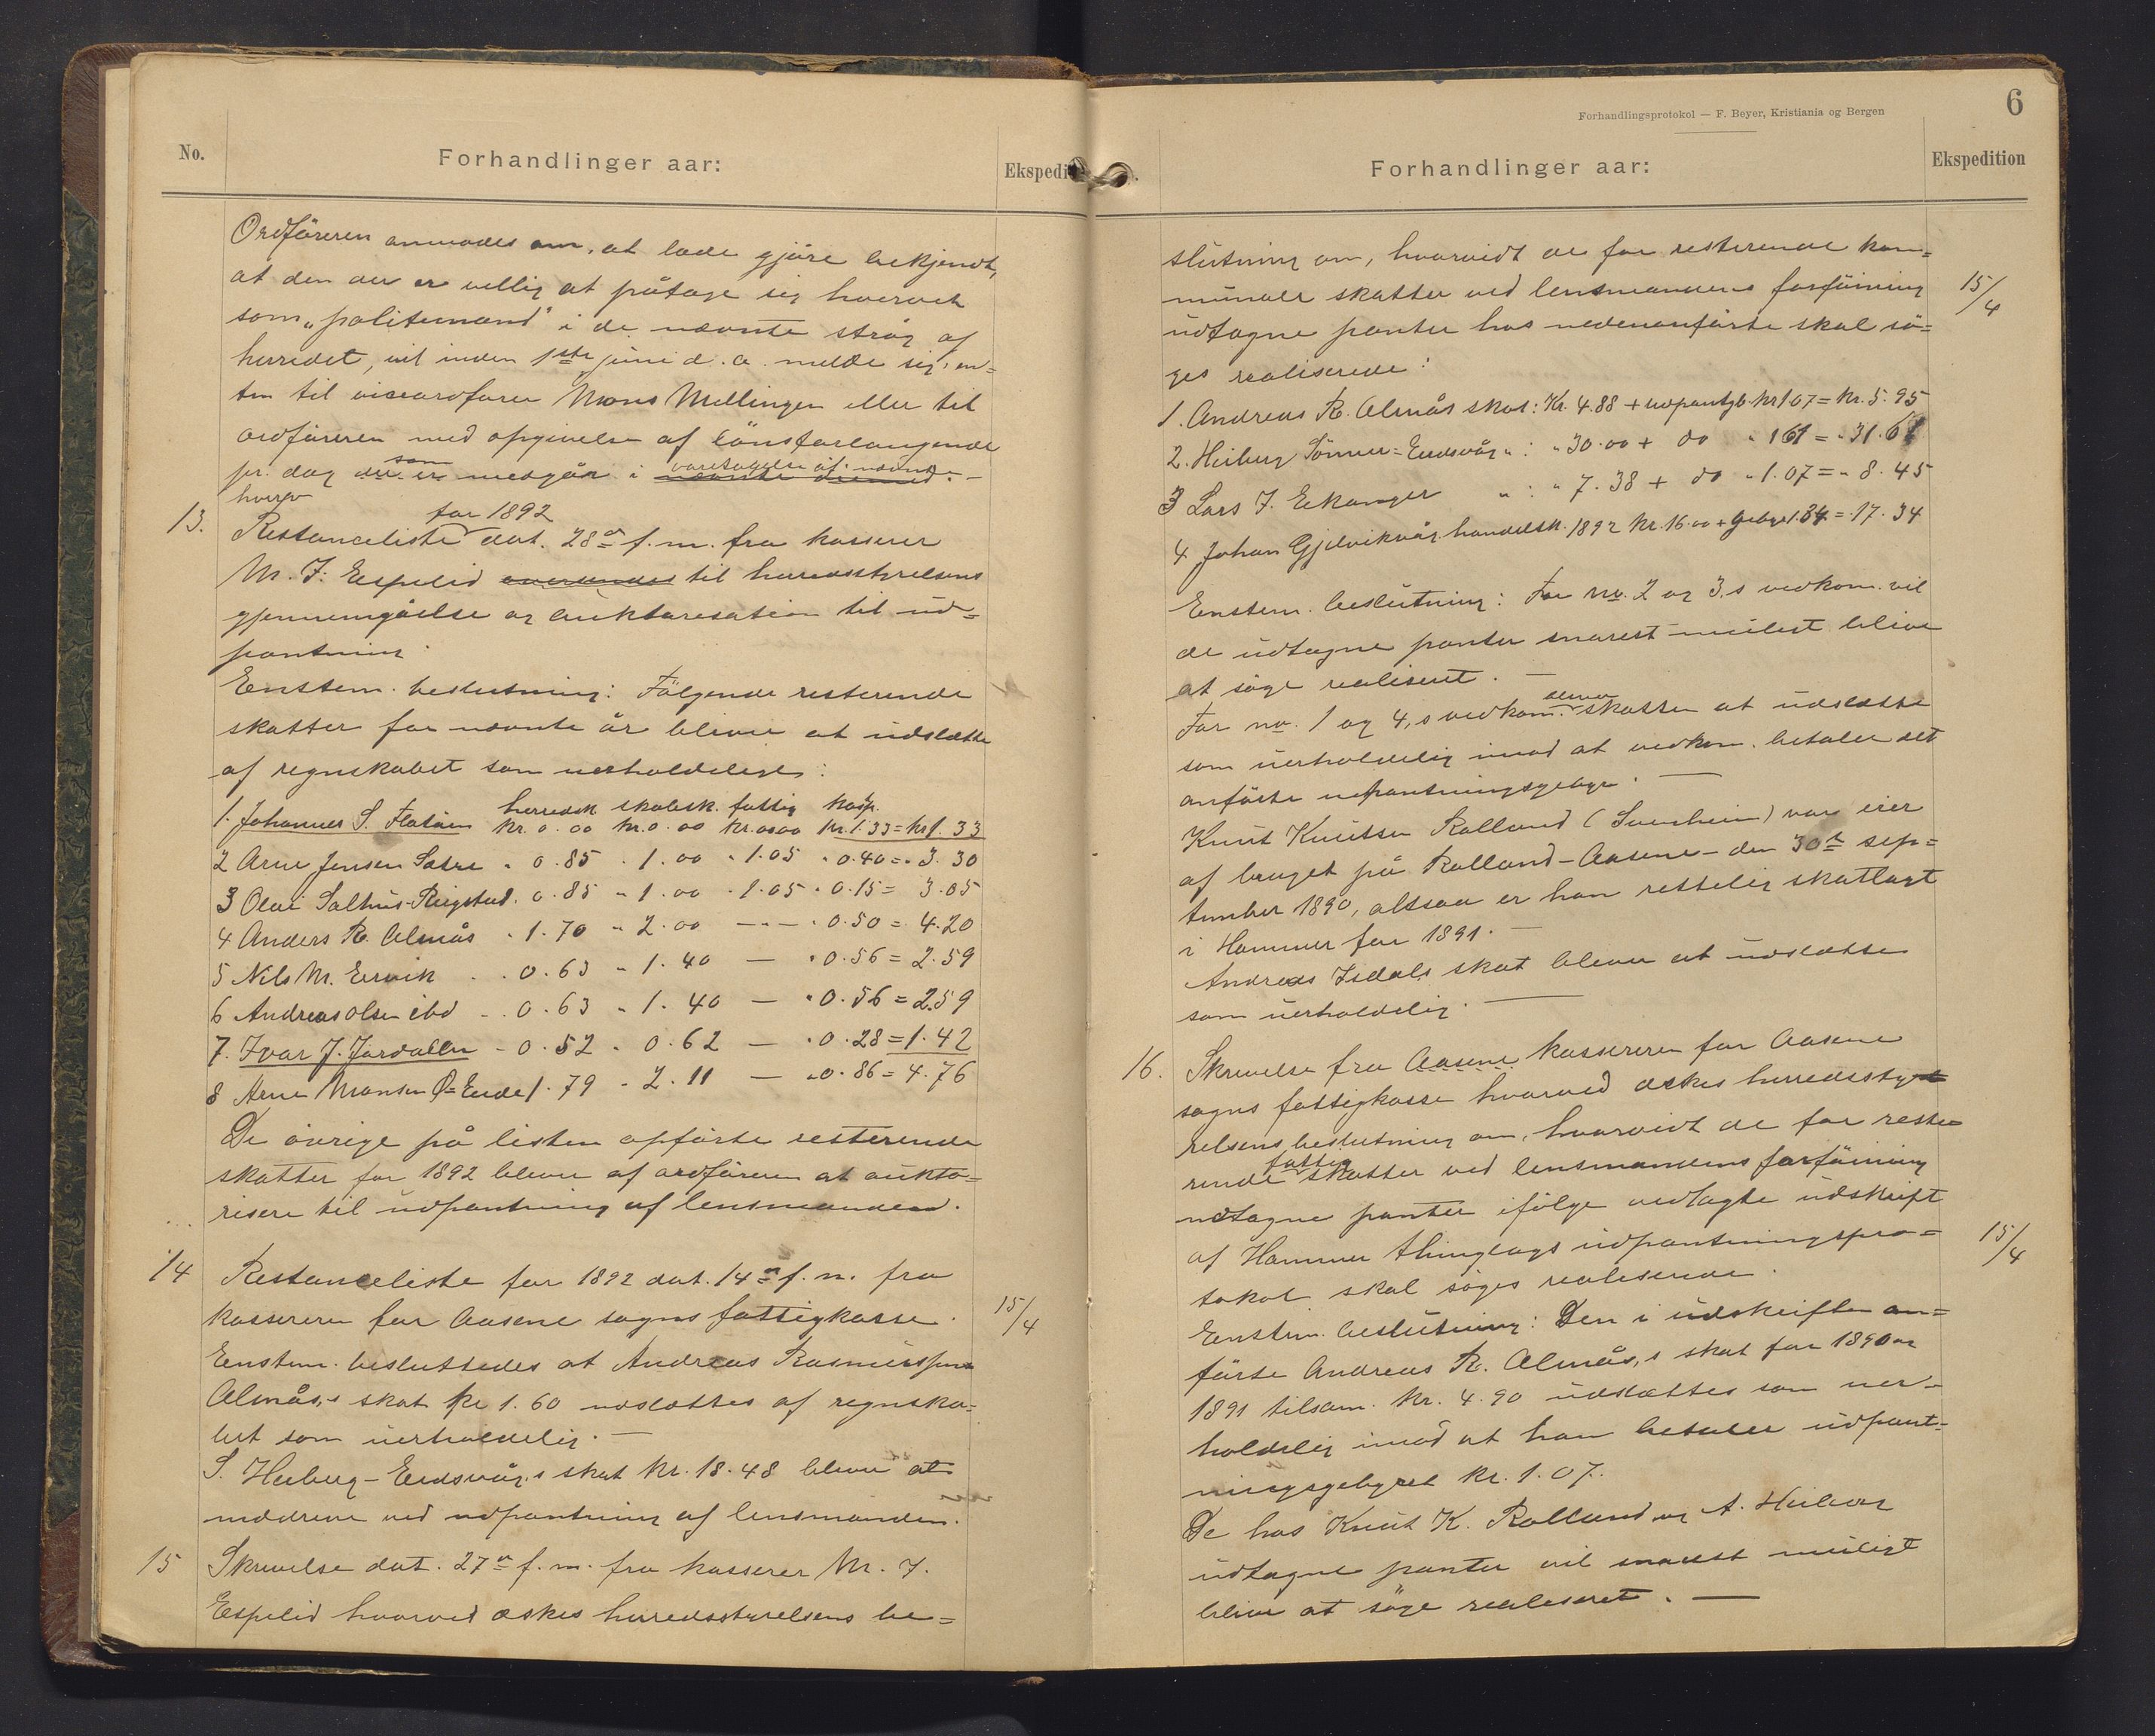 No.
Forhandlinger aar:
Ekspedi
Ordföreren anmodes om, at lade gjöre bekjendt,
at den der er villig at påtage sig hvervet
som „politimand" i de nævnte strög af
herredet, vil inden 1ste juni d. a. melde sig, en=
ten til viceordförer Mons Mellingen eller til
ordföreren med opgivelse af lönsforlangende
pr. dag der er som medgår i nævnte øiemed varetagelse af nævnte
hverv
13.
Restanceliste for 1892 dat. 28de f. m. fra kasserer
M. J. Espelid oversendes til herredsstyrelsens
gjennemgåelse og auktorisation til ud=
pantning.
Enstem. beslutning: Fölgende resterende
skatter for nævnte år bliver at udslætte
af regnskabet som uerholdelige:
herredsk. skolesk. fattig kasp.
1. Johannes S. Flatöen kr. 0.00 kr. 0.00 kr. 00.00 kr. 1.33 = kr 1.33
2 Arne Jensen Sætre " 0.85 " 1.00 " 1.05 " 0.40 = " 3.30
3 Olai Salhus-Ringstad " 0.85 " 1.00 " 1.05 " 0.15 = 3.05
4 Anders R. Almås " 1.70 " 2.00 — " — " 0.50 = 4.20
5 Nils M. Eirvik " 0.63 " 1.40 — " 0.56 = 2.59
6 Andreas Olsen ibd " 0.63 " 1.40 — " 0.56 = 2.59
7. Ivar J. Jordallen - 0.52 " 0.62 — " 0.28 = 1.42
8 Arne Monsen Ö=Eide 1.79 " 2.11 — " 0.86 = 4.76
De övrige på listen opförte resterende
skatter for 1892 bliver af ordföreren at aukto=
risere til udpantning af lensmanden.
14
Restanceliste for 1892 dat. 14de f. m. fra
kassereren for Aasene sogns fattigkasse.
15/4
Enstem. besluttedes at Andreas Rasmussen
Almås,s skat kr 1.60 udslættes af regnska=
bet som uerholdelig. —
S. Heiberg-Eidsvåg,s skat kr. 18.48 bliver at
inddrive ved udpantning af lensmanden.
15
Skrivelse dat. 27de f. m. fra kasserer M. J.
Espelid hvorved æskes herredsstyrelsens be=
Forhandlingsprotokol — F. Beyer, Kristiania og Bergen
6
Forhandlinger aar:
Ekspedition
slutning om, hvorvidt de for resterende kom=
munale skatter ved lensmandens forföining
15/4
udtagne panter hos nedenanförte skal sö=
ges realiserede:
1. Andreas R. Almås skat: Kr. 4.88 + udpantgb. kr 1.07 = kr. 5.95
2. Heiberg Sönner=Eidsvåg " : " 30.00 + do " 1 61 = " 31.61
3 Lars J. Eikanger " : " 7.38 + do " 1.07 = " 8.45
4 Johan Gjelvikvåg handelsk. 1892 kr. 16.00 + gebyr 1.34 = 17.34
Enstem. beslutning: For no. 2 og 3,s vedkom. vil
de udtagne panter snarest muligt blive
at söge realiseret. —
For no. 1 og 4,s vedkom. skatten at udslætte
som uerholdelig imod at vedkom. betaler det
anförte udpantningsgebyr. —
Knut Knutsen Rolland (Sunnheim) var eier
af bruget på Rolland-Aasene- den 30te sep=
tember 1890, altsaa er han rettelig skatlagt
i Hammer for 1891. —
Andreas Isdals skat bliver at udslætte
som uerholdelig. —
16.
Skrivelse fra Aasene kassereren for Aasene
sogns fattigkasse hvorved æskes herredssty
relsens beslutning om, hvorvidt de for reste
rende fattig skatter ved lensmandens forföining
udtagne panter ifölge vedlagte udskrift
af Hammer thinglags udpantningspro=
15/4
tokol skal söges realiserede.
Enstem. beslutning: Den i udskriften an=
förte Andreas R. Almås,s skat for 1890 og
1891 tilsam. kr. 4.90 udslættes som uer=
holdelig imod at han betaler udpant=
ningsgebyret kr. 1.07.
De hos Knut K. Rolland og A. Heiberg
udtagne panter vil snarest muligt
blive at söge realiseret. —